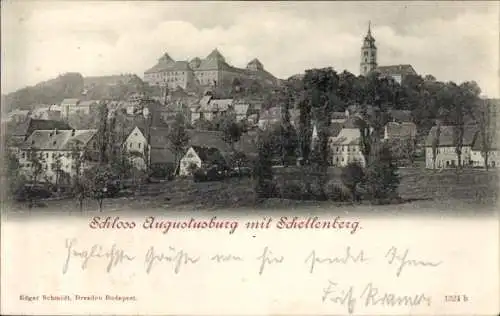 Schloss Augustusburg mit Schellenberg.
Herzlichste Grüße von hier sendet Ihnen
Fritz Kramer
Edgar Schmidt, Dresden Budapest.
1321 b